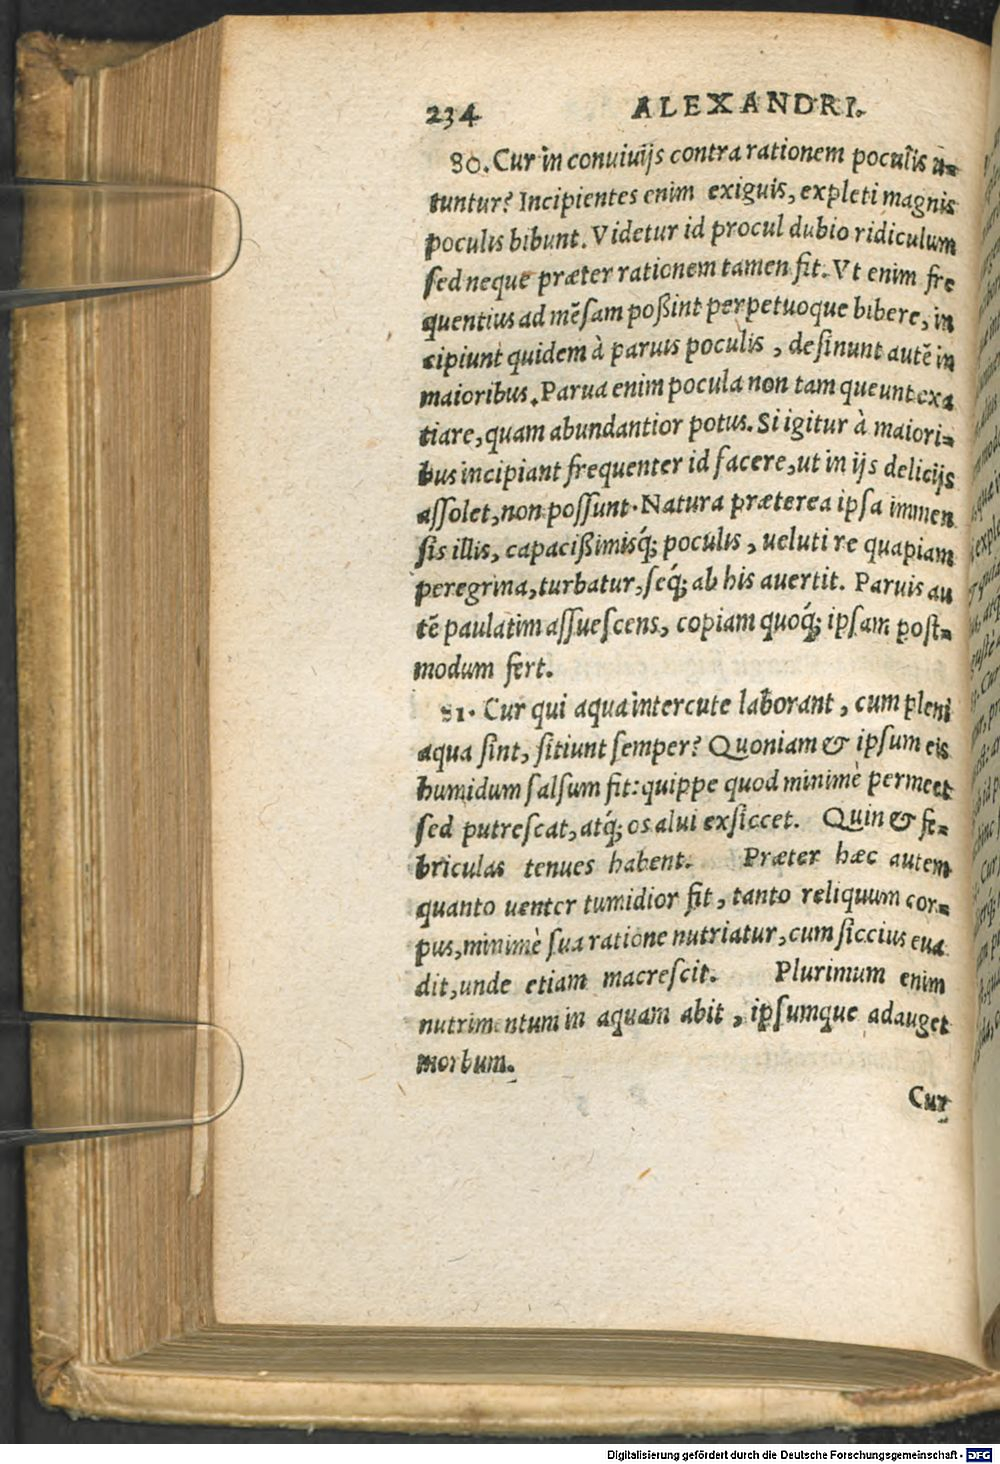 234 ALEXANDRI.
80. Cur in conuiuijs contra rationem poculis u=
tuntur? Incipientes enim exiguis, expleti magnis
poculis bibunt. Videtur id procul dubio ridiculum
sed neque præter rationem tamen fit. Vt enim fre
quentius ad mẽsam poßint perpetuoque bibere, in
cipiunt quidem à paruis poculis, desinunt autẽ in
maioribus. Parua enim pocula non tam queunt exa
tiare, quam abundantior potus. Si igitur à maiori=
bus incipiant frequenter id facere, ut in ijs delicijs
aſſolet, non poſſunt. Natura præterea ipſa immen
ſis illis, capacißimisq́; poculis, ueluti re quapiam
peregrina, turbatur, ſeq́; ab his auertit. Paruis au
tẽ paulatim aſſueſcens, copiam quoq́; ipſam poſt=
modum fert.
81. Cur qui aqua intercute laborant, cum pleni
aqua ſint, ſitiunt ſemper? Quoniam & ipſum eis
humidum ſalſum fit: quippe quod minimè permeet
ſed putreſcat, atq́; os alui exſiccet. Quin & fe=
briculas tenues habent. Præter hæc autem
quanto uenter tumidior fit, tanto reliquum cor=
pus, minimè ſua ratione nutriatur, cum ſiccius eua
dit, unde etiam macreſcit. Plurimum enim
nutrimentum in aquam abit, ipſumque adauget
morbum.
Cur
Digitalisierung gefördert durch die Deutsche Forschungsgemeinschaft - DFG